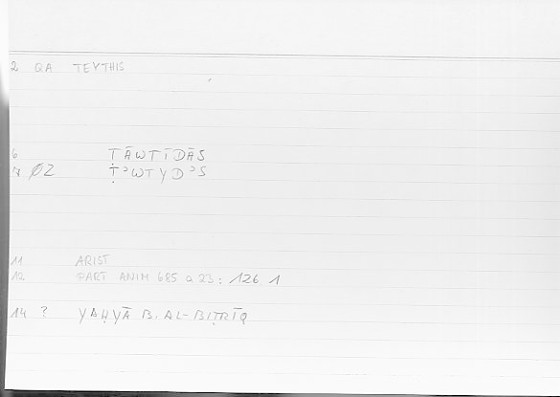 2 QA TEVTHIS
6 ṬĀWTĪDĀS
7 ØZ ṬʾWTYDʾS
11 ARIST
12 PART ANIM 685 a 23: 126 1
14 ? YAḤYĀ B. AL-BIṬRĪQ